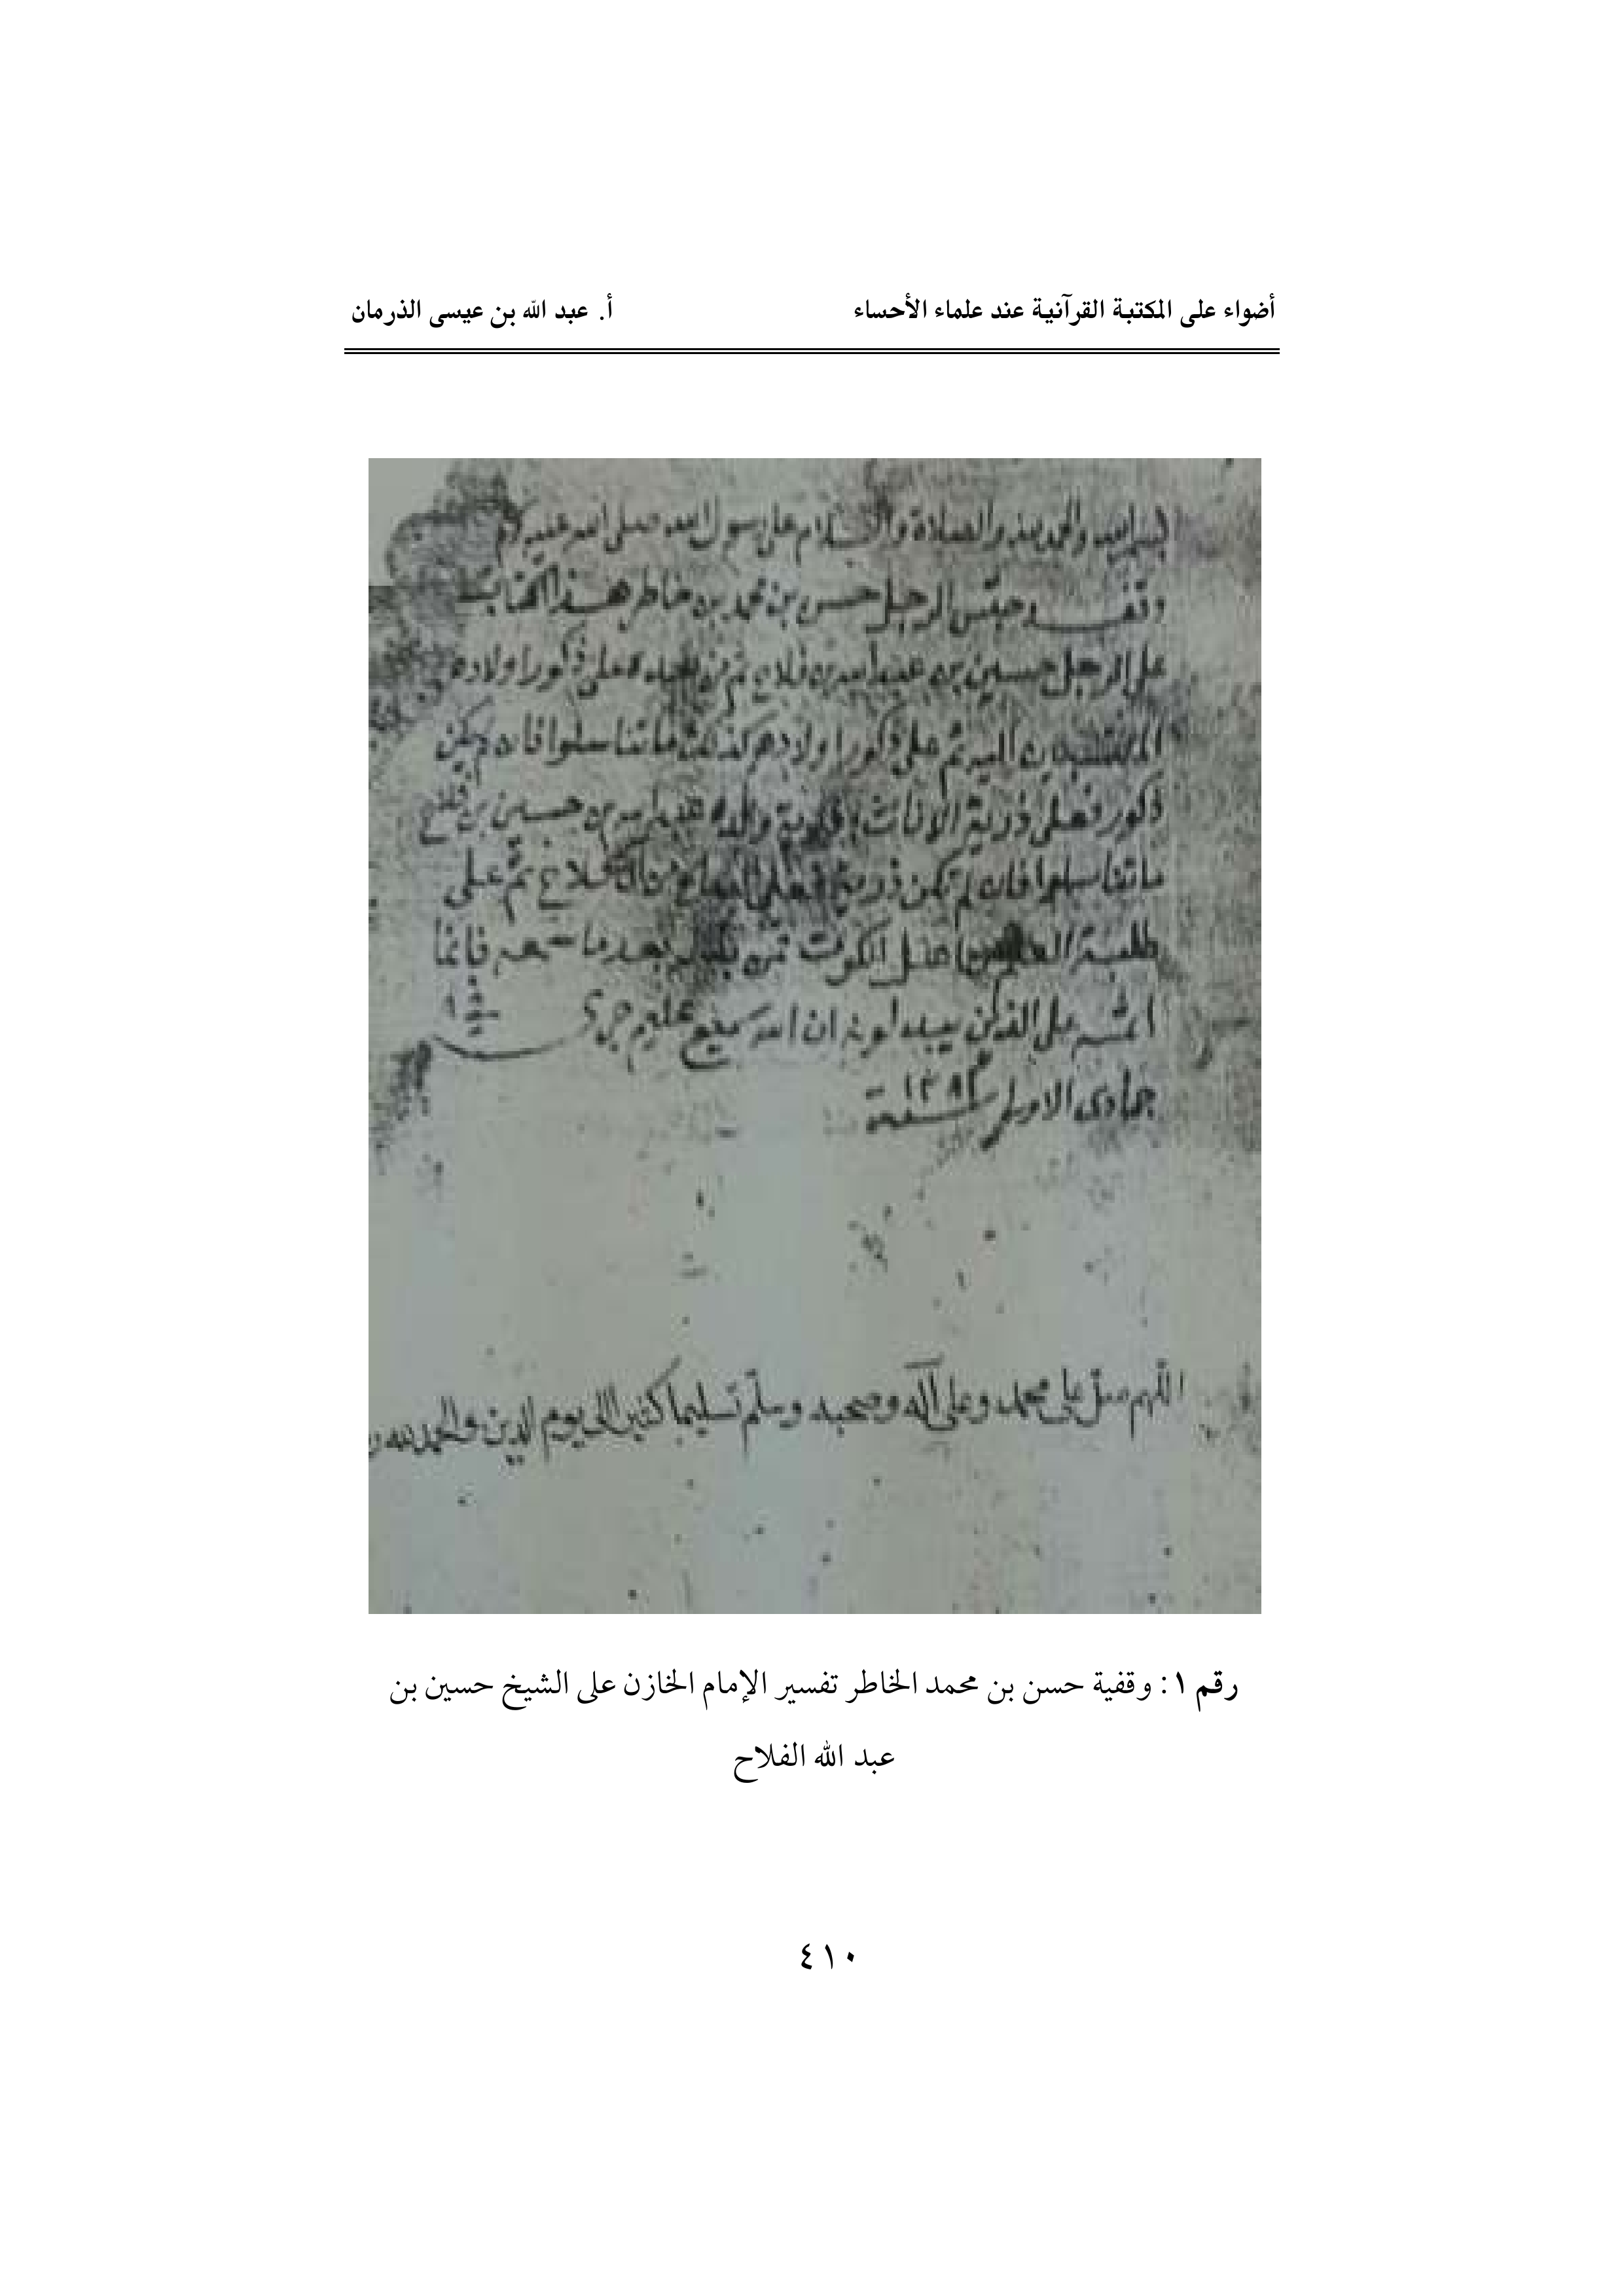 أضواء على المكتبة القرآنية عند علماء الأحساء أ. عبد الله بن عيسى الذرمان
بسم الله والحمد لله والصلاة والسلام على رسول الله صلى الله عليه
وقف وحبس الرجل حسن بن محمد بن خاطر هذا الكتاب
على الرجل حسين بن عبد الله بن فلاح ثم من بعده فعلى ذكور اولاده
ثم على ذكور اولادهم كذلك ما تناسلوا فان لم يكن
ذكور فعلى ذرية الاناث عبد الله بن حسين بن فلاح
ما تناسلوا فان لم تكن ذرية فعلى من آل فلاح ثم على
طلبة العلم من اهل الكوت فمن بدله بعد ما سمعه فانما
اثمه على الذين يبدلونه ان الله سميع عليم جرى
جمادى الاولى سنة
اللهم صل على محمد وعلى آله وصحبه وسلم تسليما كثيرا الى يوم الدين والحمد لله
رقم ١: وقفية حسن بن محمد الخاطر تفسير الإمام الخازن على الشيخ حسين بن
عبد الله الفلاح
٤١٠